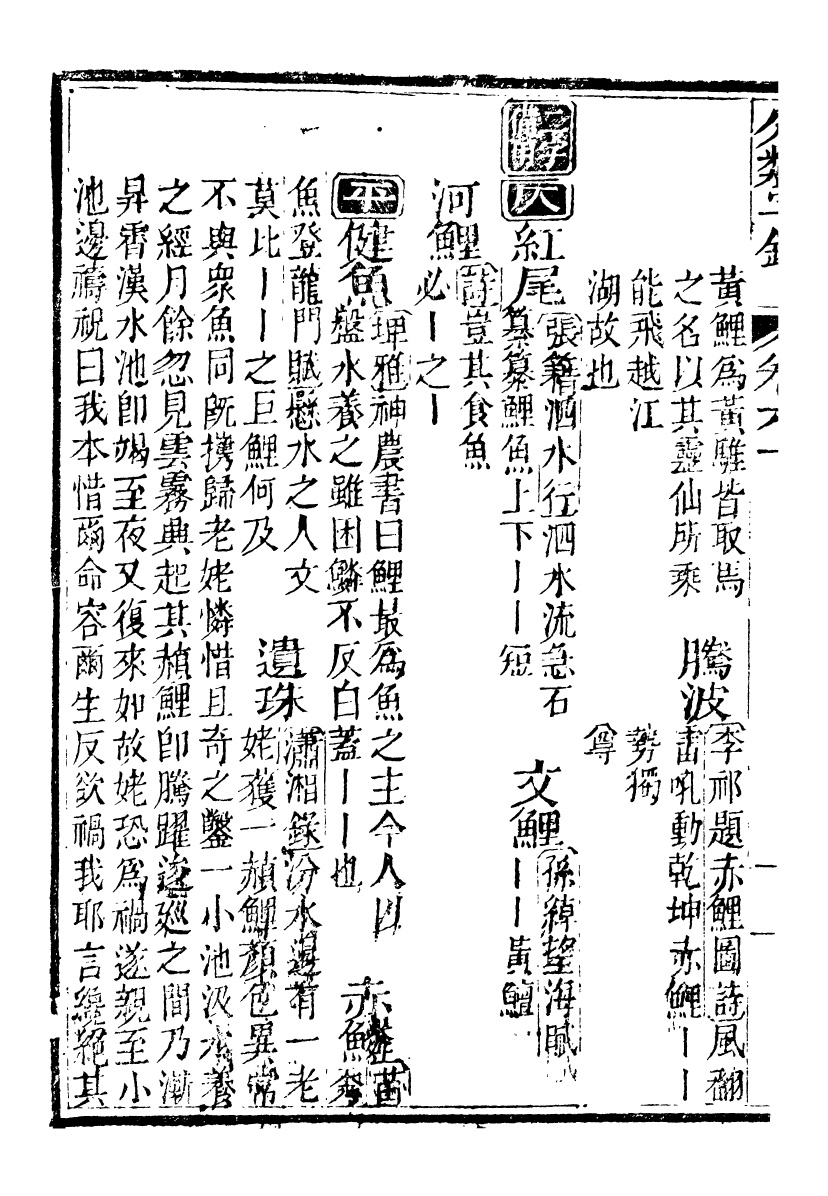 分類字錦 卷六十一
黃鯉爲黃騅皆取馬
之名以其靈仙所乘
能飛越江
湖故也
騰波
李祁題赤鯉圖詩風翻
雷吼動乾坤赤鯉丨丨
勢獨
尊
二字
備用
仄
紅尾
張籍泗水行泗水流急石
纂纂鯉魚上下丨丨短
文鯉
孫綽望海賦
丨丨黃鱣
河鯉
詩豈其食魚
必丨之丨
平
健魚
埤雅神農書曰鯉最爲魚之主今人以
盤水養之雖困鱗不反白蓋丨丨也
赤魚
魚登龍門賦懸水之人文
莫比丨丨之巨鯉何及
遺珠
瀟湘錄汾水邊有一老
姥獲一赬鯉顏色異常
不與衆魚同旣攜歸老姥憐惜且奇之鑿一小池汲水養
之經月餘忽見雲霧興起其赬鯉卽騰躍逡巡之間乃漸
昇霄漢水池卽竭至夜又復來如故姥恐爲禍遂親至小
池邊禱祝曰我本惜爾命容爾生反欲禍我耶言纔絕其